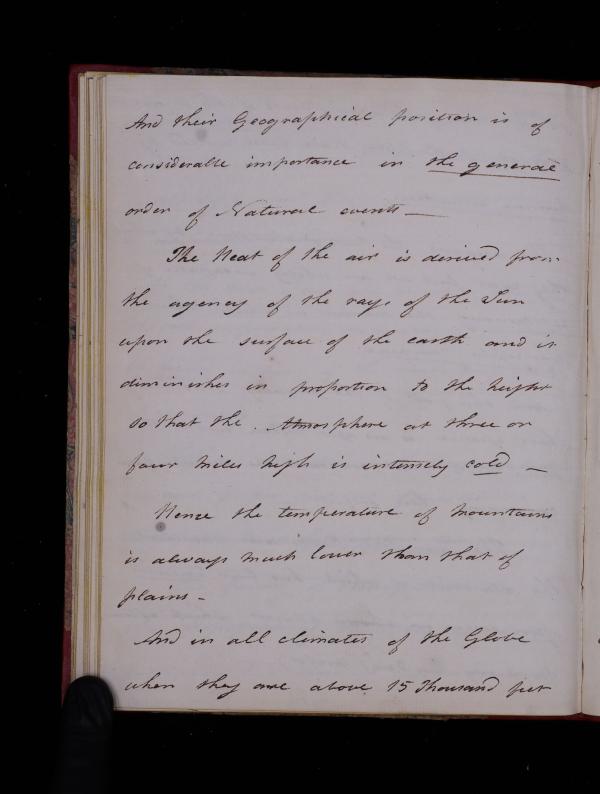 And their Geographical position is of
considerable importance in the general
order of Natural events —
The Heat of the air is derived from
the agency of the rays of the Sun
upon the surface of the earth and it
diminishes in proportion to the height
so that the Atmosphere at three or
four miles high is intensely cold —
Hence the temperature of Mountains
is always much lower than that of
plains —
And in all climates of the Globe
when they are above 15 Thousand feet